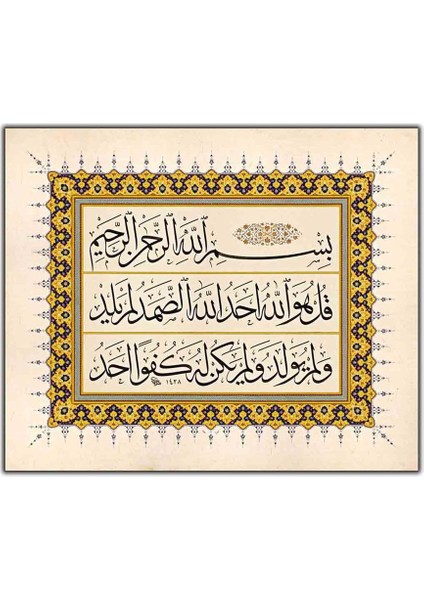 بِسْمِ اللَّهِ الرَّحْمَنِ الرَّحِيمِ
قُلْ هُوَ اللَّهُ أَحَدٌ اللَّهُ الصَّمَدُ لَمْ يَلِدْ
وَلَمْ يُولَدْ وَلَمْ يَكُنْ لَهُ كُفُوًا أَحَدٌ
١٤٢٨